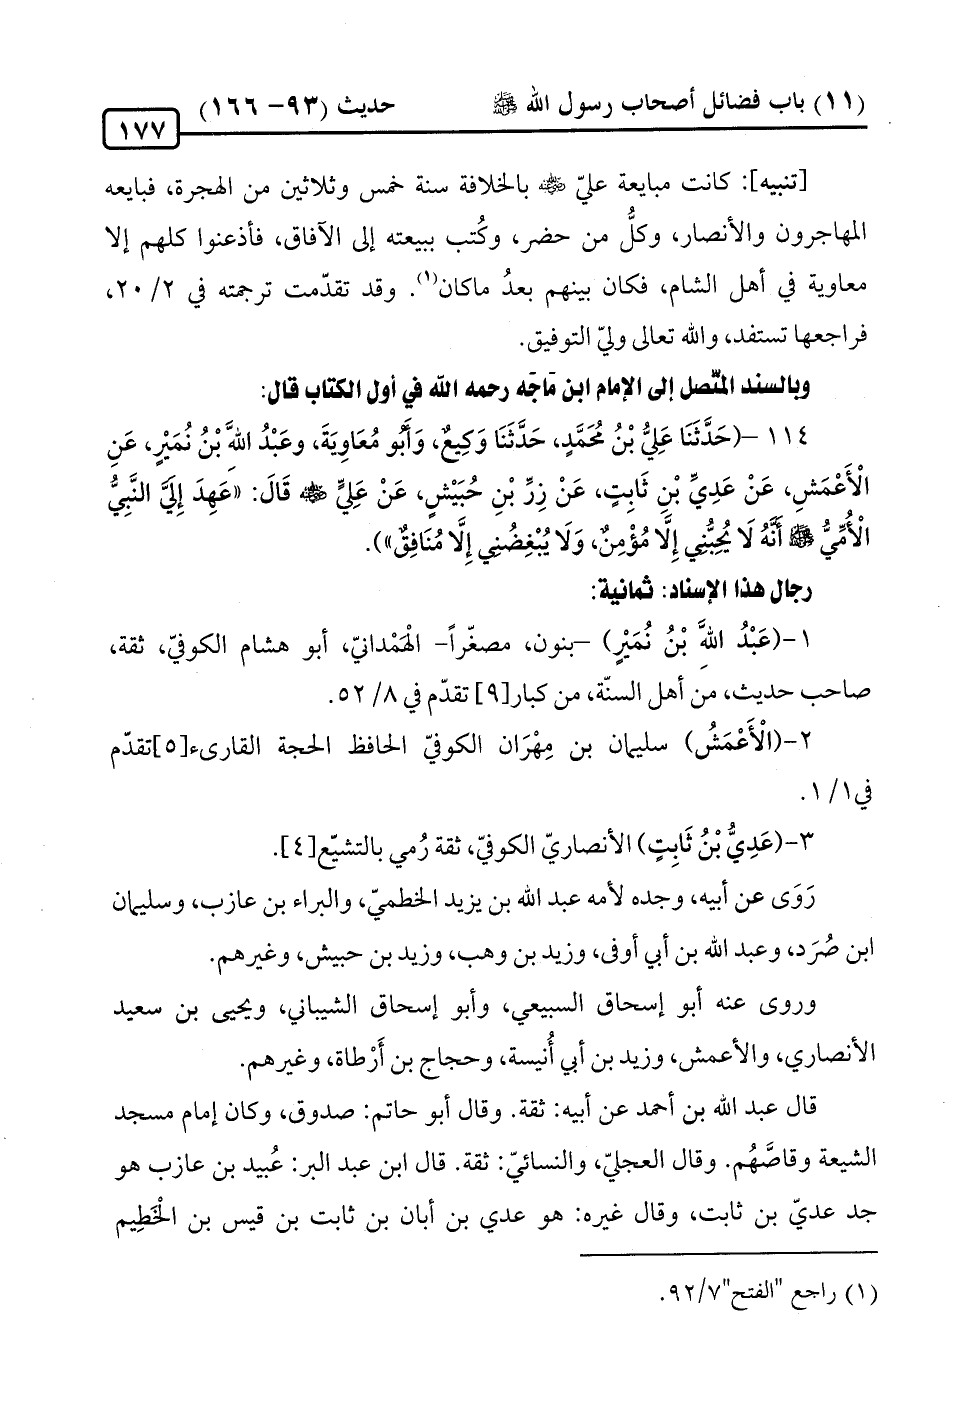 (١١) باب فضائل أصحاب رسول الله ﷺ حديث (٩٣- ١٦٦)
١٧٧
[تنبيه]: كانت مبايعة عليّ رضي الله عنه بالخلافة سنة خمس وثلاثين من الهجرة، فبايعه
المهاجرون والأنصار، وكلُّ من حضر، وكُتب ببيعته إلى الآفاق، فأذعنوا كلهم إلا
معاوية في أهل الشام، فكان بينهم بعدُ ماكان(١). وقد تقدّمت ترجمته في ٢٠/٢،
فراجعها تستفد، والله تعالى وليّ التوفيق.
وبالسند المتّصل إلى الإمام ابن مَاجَه رحمه الله في أول الكتاب قال:
١١٤ –(حَدَّثَنَا عَلِيُّ بْنُ مُحَمَّدٍ، حَدَّثَنَا وَكِيعٌ، وَأَبُو مُعَاوِيَةَ، وعَبْدُ اللهِ بْنُ نُمَيْرٍ، عَنِ
الْأَعْمَشِ، عَنْ عَدِيِّ بْنِ ثَابِتٍ، عَنْ زِرِّ بْنِ حُبَيْشٍ، عَنْ عَلِيٍّ رضي الله عنه قَالَ: «عَهِدَ إِلَيَّ النَّبِيُّ
الْأُمِّيُّ ﷺ أَنَّهُ لَا يُحِبُّنِي إِلَّا مُؤْمِنٌ، وَلَا يُبْغِضُنِي إِلَّا مُنَافِقٌ»).
رجال هذا الإسناد: ثمانية:
١-(عَبْدُ اللهِ بْنُ نُمَيْرٍ) –بنون، مصغّراً– الْهَمْدانيّ، أبو هشام الكوفيّ، ثقة،
صاحب حديث، من أهل السنّة، من كبار[٩] تقدّم في ٨/ ٥٢.
٢-(الْأَعْمَشُ) سليمان بن مِهْرَان الكوفيّ الحافظ الحجة القارىء[٥]تقدّم
في١/ ١.
٣-(عَدِيُّ بْنُ ثَابِتٍ) الأنصاريّ الكوفيّ، ثقة رُمي بالتشيّع[٤].
رَوَى عن أبيه، وجده لأمه عبد الله بن يزيد الخطميّ، والبراء بن عازب، وسليمان
ابن صُرَد، وعبد الله بن أبي أوفى، وزيد بن وهب، وزيد بن حبيش، وغيرهم.
وروى عنه أبو إسحاق السبيعي، وأبو إسحاق الشيباني، ويحيى بن سعيد
الأنصاري، والأعمش، وزيد بن أبي أُنيسة، وحجاج بن أَرْطاة، وغيرهم.
قال عبد الله بن أحمد عن أبيه: ثقة. وقال أبو حاتم: صدوق، وكان إمام مسجد
الشيعة وقاصَّهُم. وقال العجليّ، والنسائيّ: ثقة. قال ابن عبد البر: عُبيد بن عازب هو
جد عديّ بن ثابت، وقال غيره: هو عدي بن أبان بن ثابت بن قيس بن الْخَطِيم
(١) راجع "الفتح"٩٢/٧.